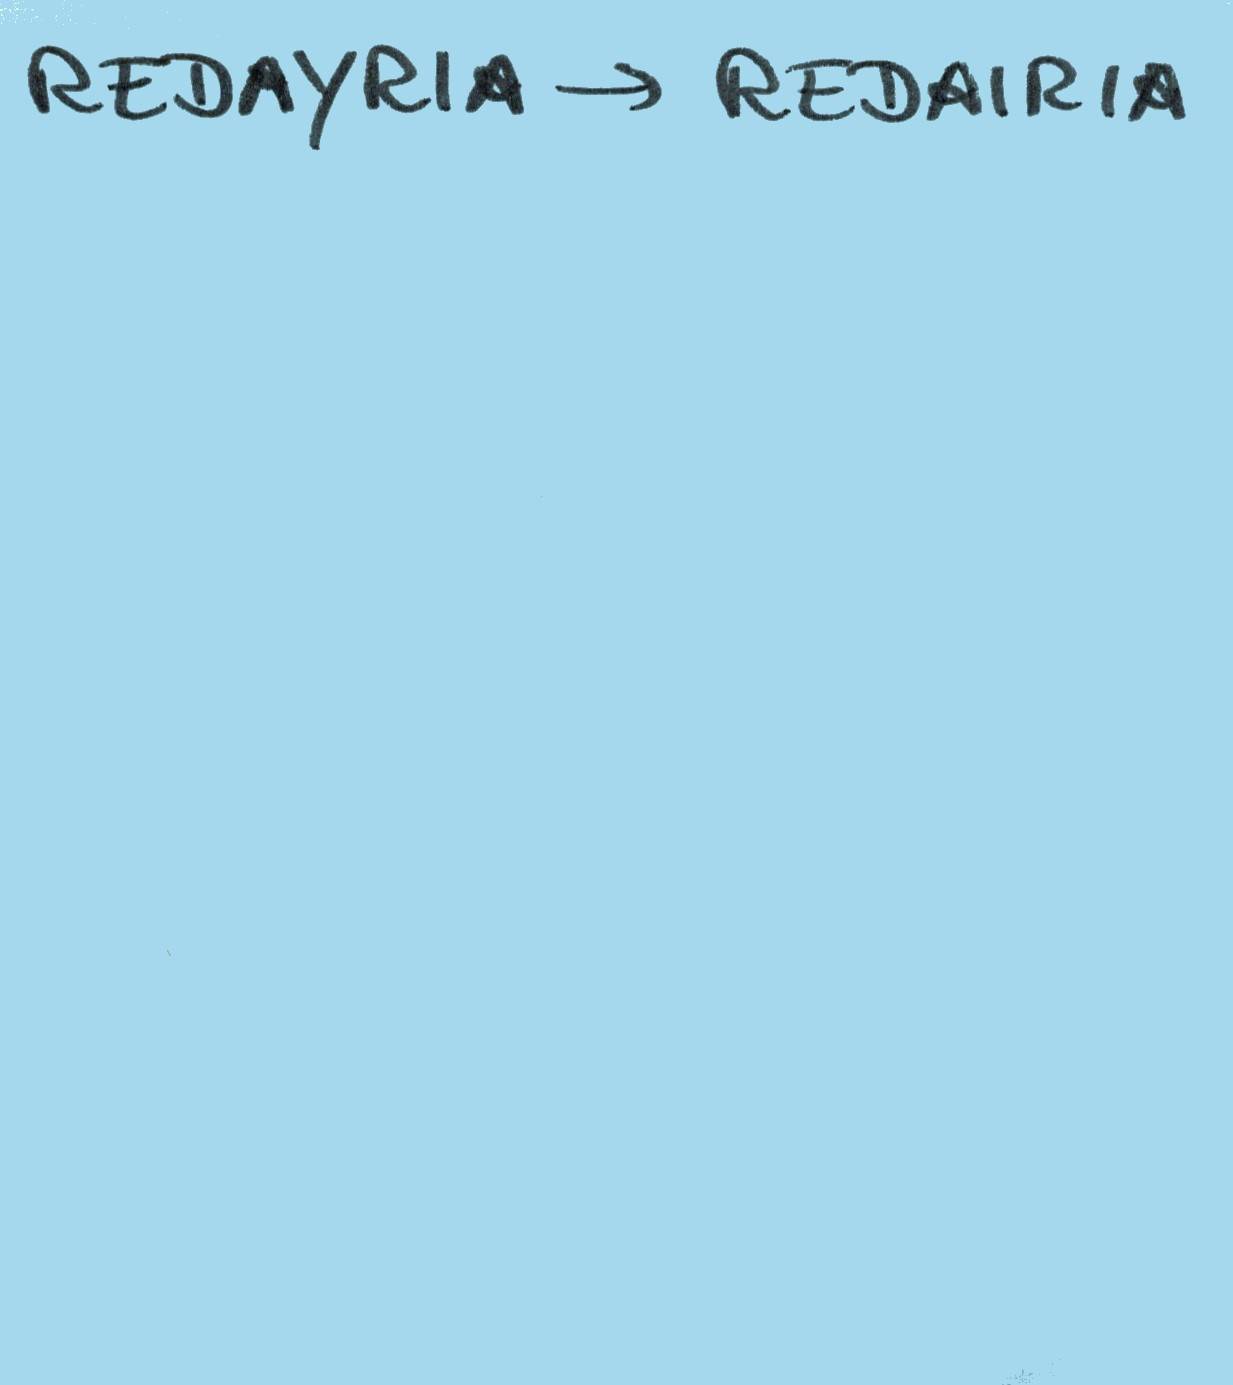 REDAYRIA → REDAIRIA